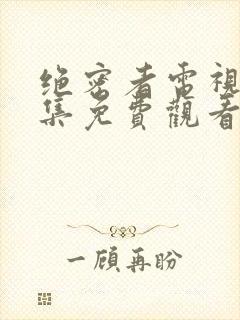 绝密者電視
集免費觀看
一顧再盼